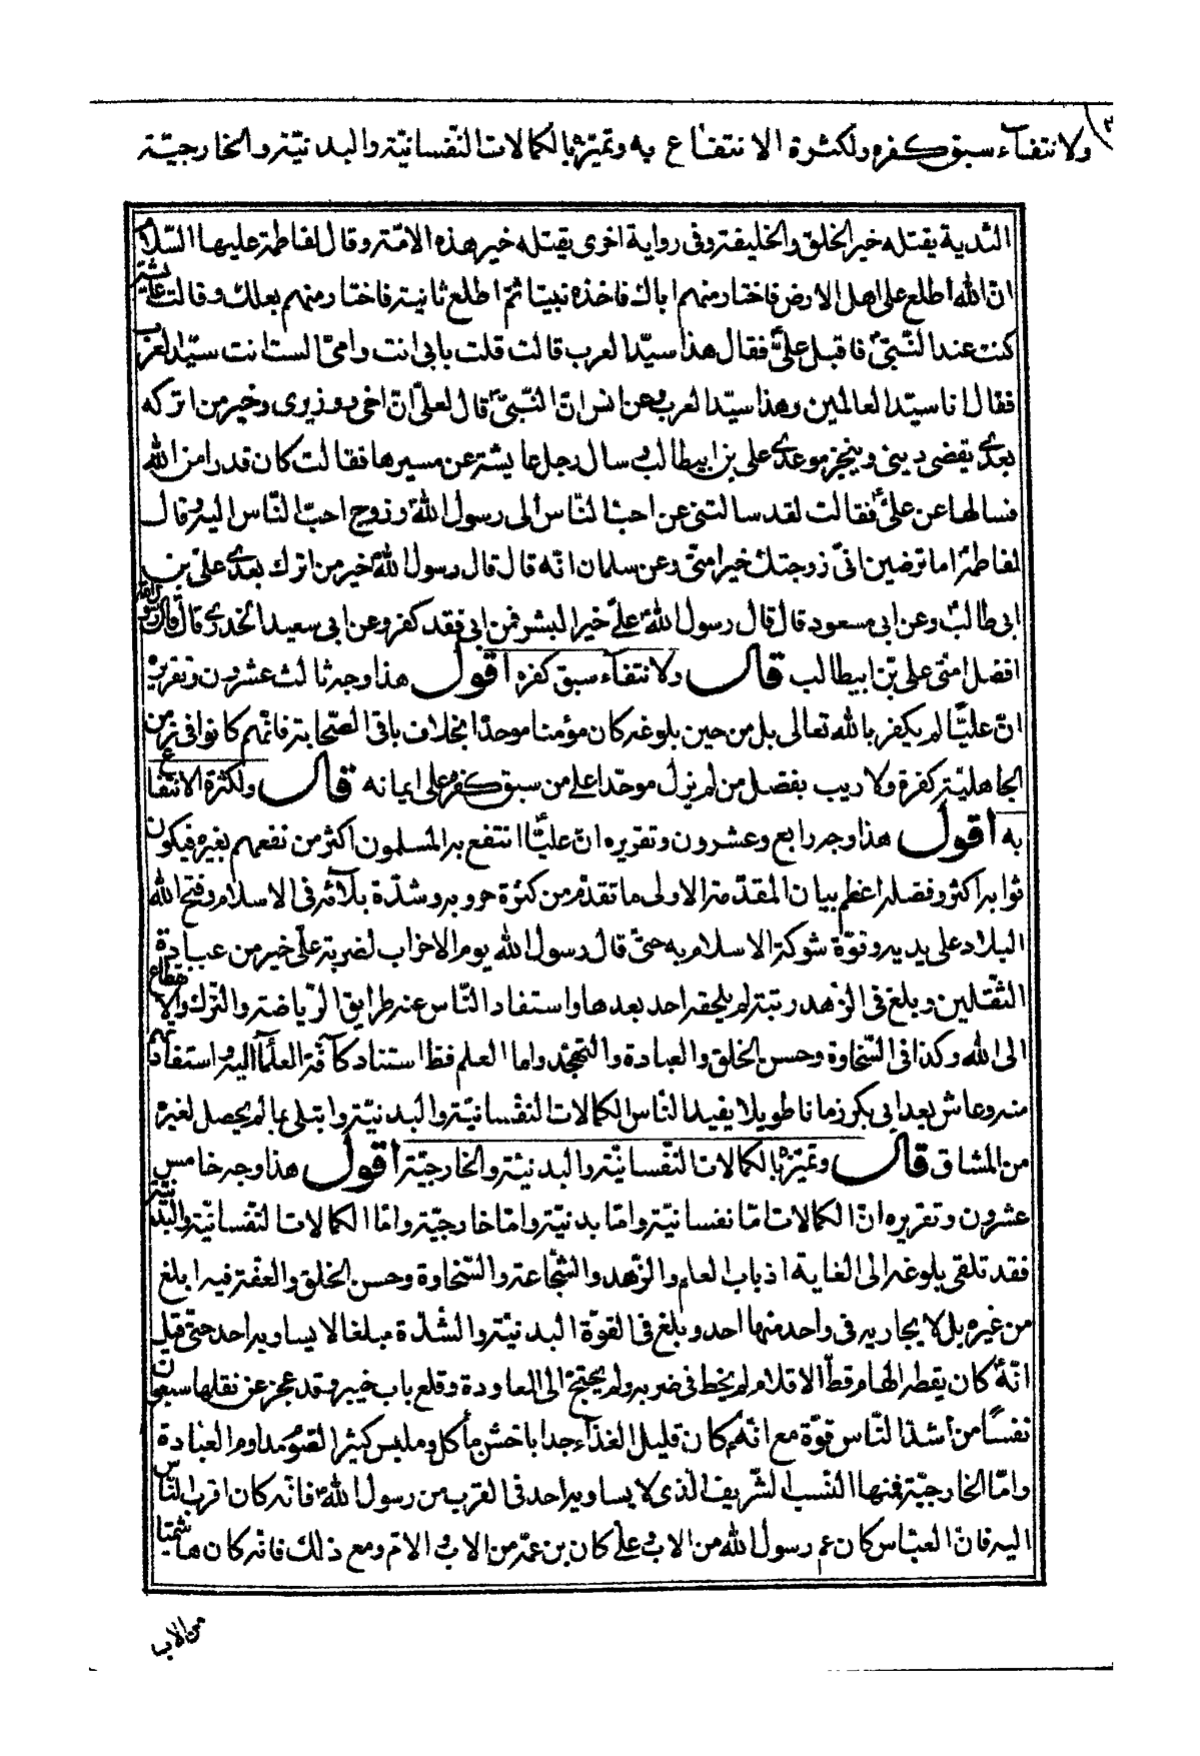 ولانتفاء سبق كفره ولكثرة الانتفاع به وتميزه بالكمالات النفسانيّة والبدنيّة والخارجيّة
الثدية يقتله خير الخلق والخليفة وفى رواية اخرى يقتله خير هذه الامّة وقال لفاطمة عليها السّلام
انّ الله اطلع على اهل الارض فاختار منهم اباك فاخذه نبيّا ثمّ اطلع ثانية فاختار منهم بعلك وقالت عايشة
كنت عند النّبىّ فاقبل علىّ فقال هذا سيّد العرب قالت قلت بابى انت وامّى الست انت سيّد العرب
فقال انا سيّد العالمين وهذا سيّد العرب وعن انس انّ النّبىّ قال لعلىّ انّ اخى ووزيرى وخير من اتركه
بعدى يقضى دينى وينجز موعدى على بن ابيطالب وسال رجل عايشة عن مسيرها فقالت كان قدرا من الله
فسالها عن علىّ فقالت لقد سالتنى عن احبّ النّاس الى رسول الله وزوج احبّ النّاس اليه وقال
لفاطمة اما ترضين انىّ زوجتك خير امتى وعن سلمان انّه قال قال رسول الله خير من اترك بعدى علىّ بن
ابى طالب وعن ابى مسعود قال قال رسول الله علىّ خير البشر فمن ابى فقد كفر وعن ابى سعيد الخدرى قال قال رسول الله
افضل امتى على بن ابيطالب قال ولانتفاء سبق كفره اقول هذا وجه ثالث عشرون وتقريره
انّ عليّا لم يكفر بالله تعالى بل من حين بلوغه كان مؤمنا موحدا بخلاف باقى الصّحابة فانّهم كانوا فى زمن
الجاهليّة كفرة ولا ريب بفضل من لم يزل موحّدا على من سبق كفره على ايمانه قال ولكثرة الانتفاع
به اقول هذا وجه رابع وعشرون وتقريره انّ عليّا انتفع به المسلمون اكثر من نفعهم بغيره فيكون
ثوابه اكثر وفضله اعظم بيان المقدّمة الاولى ما تقدّم من كثرة حروبه وشدّة بلائه فى الاسلام وفتح الله
البلاد على يديه وقوّة شوكة الاسلام به حتّى قال رسول الله يوم الاحزاب لضربة علىّ خير من عبادة
الثقلين وبلغ فى الزهد رتبة لم يلحقه احد بعدها واستفاد النّاس عنه طرايق الرّياضة والترك والانقطاع
الى الله وكذا فى السّخاوة وحسن الخلق والعبادة والتهجّد واما العلم فظ استناد كآفة العلمآء اليه واستفادتهم
منه وعاش بعد ابى بكر زمانا طويلا يفيد النّاس الكمالات النفسانيّة والبدنيّة وابتلى بما لم يحصل لغيره
من المشاق قال وتميّزه بالكمالات النّفسانيّة والبدنيّة والخارجيّة اقول هذا وجه خامس
عشرون وتقريره انّ الكمالات امّا نفسانيّة وامّا بدنيّة وامّا خارجيّة وامّا الكمالات النفسانيّة والبدنيّة
فقد تلقى بلوغه الى الغاية اذ باب العلم والزّهد والشّجاعة والسّخاوة وحسن الخلق والعفّة فيه ابلغ
من غيره بل لا يجاريه فى واحد منها احد وبلغ فى القوّة البدنيّة والشدّة مبلغا لا يساويه احد حتى قيل
انّه كان يقط الهام قطّ الاقلام لم يخط فى ضربه ولم يحتج الى المعاودة وقلع باب خيبر وقد عجز عن نقلها سبعون
نفسا من اشدّ النّاس قوّة مع انّه كان قليل الغذاء جدا باخشن مأكل وملبس كثير الصّوم مداوم العبادة
وامّا الخارجيّة فمنها النّسب الشّريف الّذى لا يساويه احد فى القرب من رسول الله فانّه كان اقرب النّاس
اليه فانّ العبّاس كان عمّ رسول الله من الاب وعلىّ كان بن عمّه من الاب والامّ ومع ذلك فانّه كان هاشميّا
من الاب